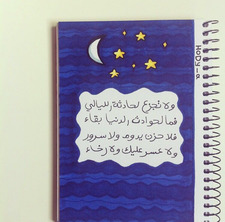 ولا تجزع لحادثة الليالي
فما لحوادث الدنيا بقاء
فلا حزن يدوم ولا سرور
ولا عسر عليك ولا رخاء
HoDy_a